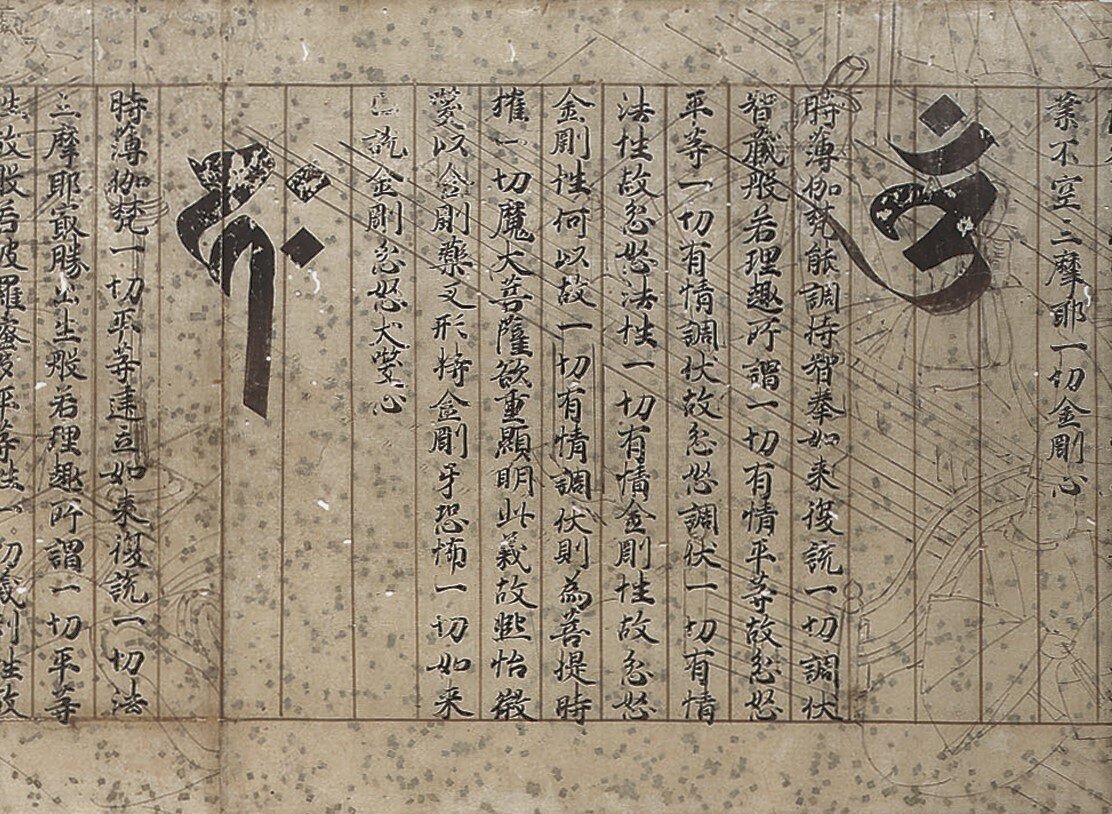 業不空三摩耶一切金剛心
𑖌𑖼
時薄伽梵能調持智拳如来復説一切調伏
智蔵般若理趣所謂一切有情平等故忿怒
平等一切有情調伏故忿怒調伏一切有情
法性故忿怒法性一切有情金剛性故忿怒
金剛性何以故一切有情調伏則為菩提時
摧一切魔大菩薩欲重顯明此義故熙怡微
笑以金剛藥叉形持金剛牙恐怖一切如来
已説金剛忿怒大笑心
𑖮𑖾
時薄伽梵一切平等建立如来復説一切法
三摩耶最勝出生般若理趣所謂一切平等
性故般若波羅蜜多平等性一切義利性故